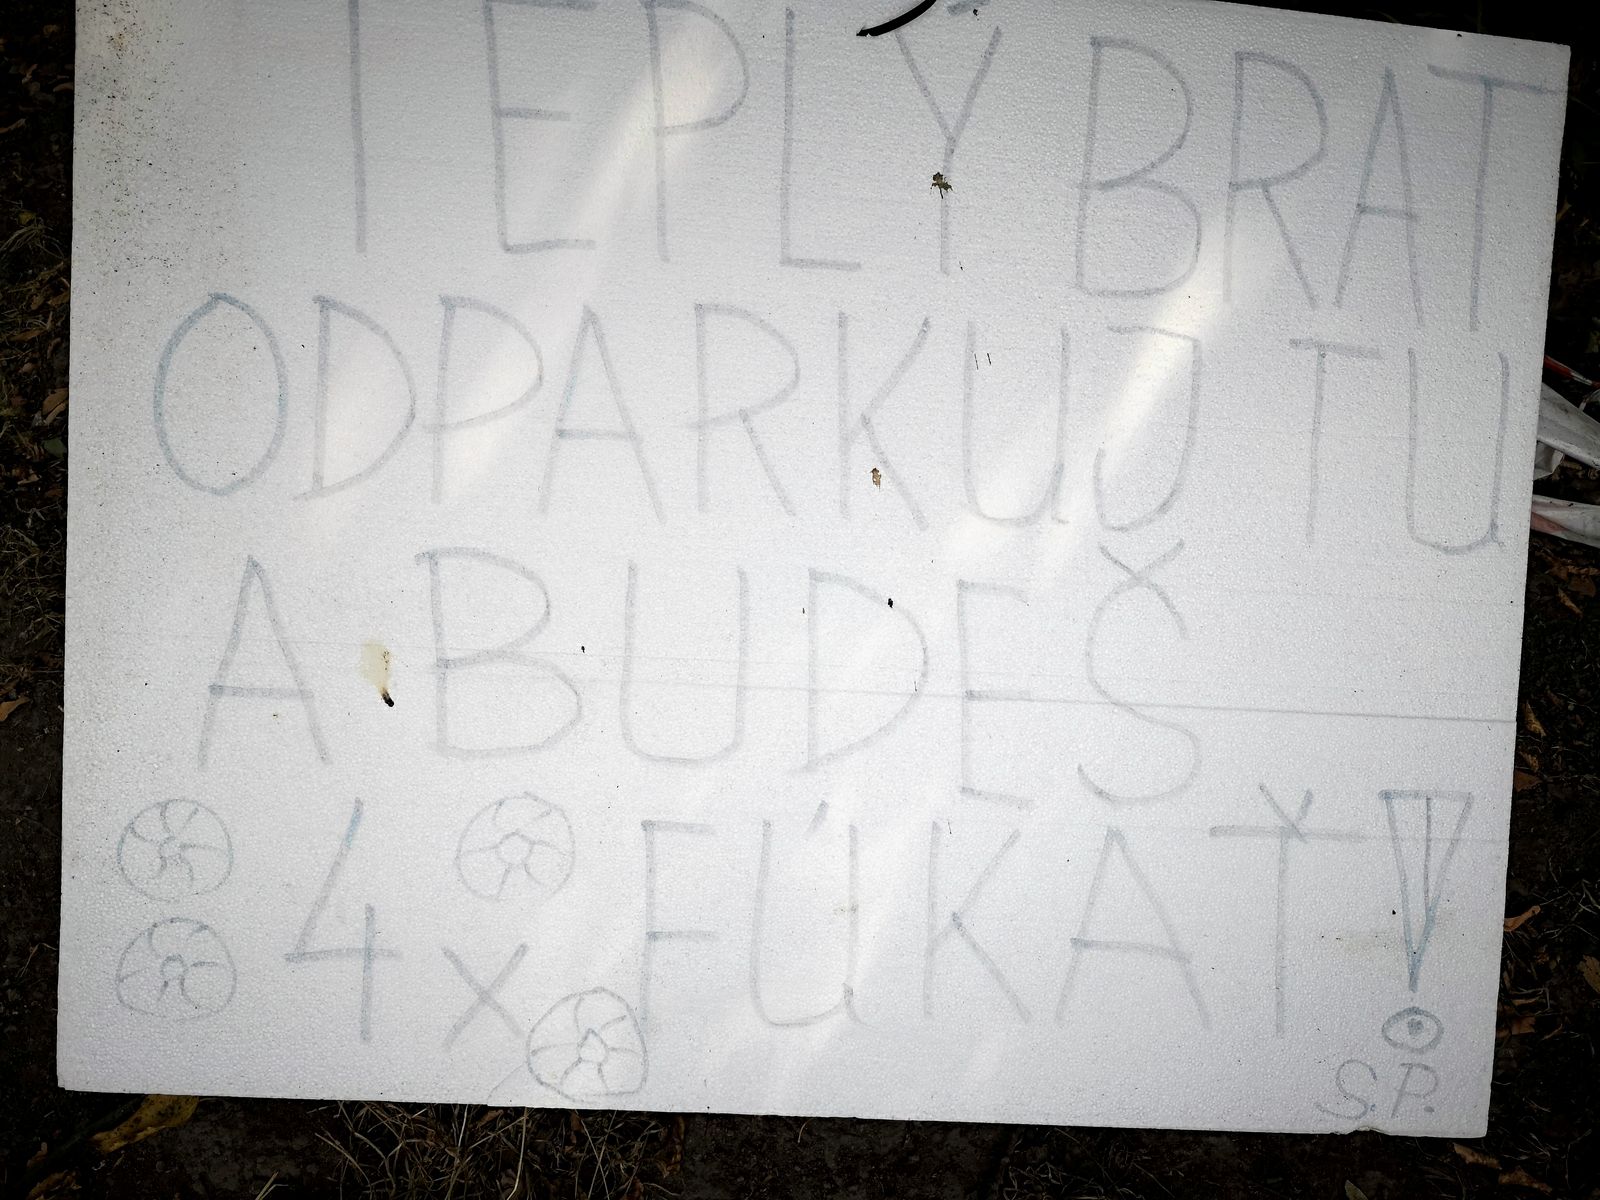 TEPLÝ BRAT
ODPARKUJ TU
A BUDEŠ
4 x FÚKAŤ!
S.P.